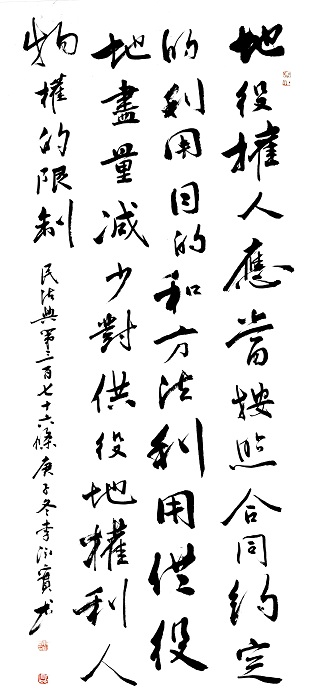 地役權人應當按照合同約定
的利用目的和方法利用供役
地盡量減少對供役地權利人
物權的限制 民法典第三百七十六條 庚子冬李寶书